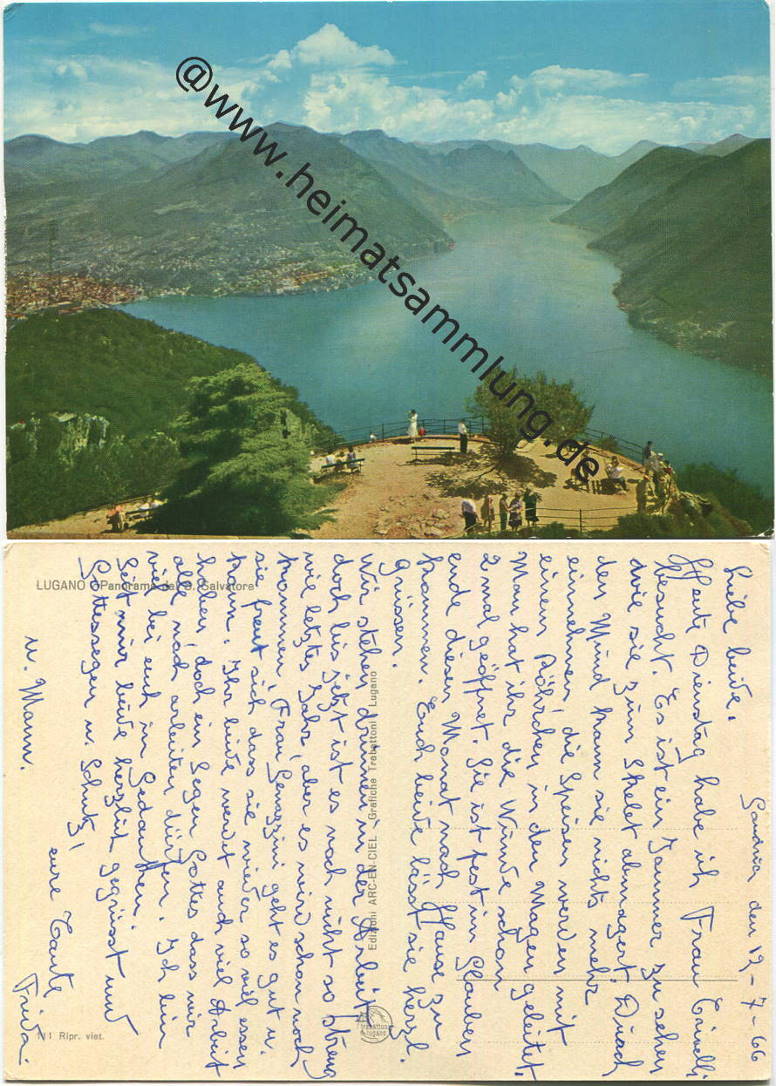 @www.heimatsammlung.de
LUGANO - Panorama dal S. Salvatore
Gandria den 19-7-66
Liebe beide.
Heute Dienstag habe ich Frau
besucht. Es ist ein Jammer zu sehen
wie sie zum Skelet abmagert. Durch
den Mund kann sie nichts mehr
einnehmen, die Speisen werden mit
einem Röhrchen in den Magen geleitet.
Man hat ihr die Wunde schon
2 mal geöffnet. Sie ist fest im Glauben
ende dieser Monat nach Hause zu
kommen. Euch beide lässt sie herzl.
grüssen.
Wir stehen drinnen in der Arbeit
doch bis jetzt ist es noch nicht so streng
wie letztes Jahr, aber es wird schon noch
kommen, Frau geht es gut u.
sie freut sich dass sie wieder so viel essen
kann. Ihr beide werdet auch viel Arbeit
haben, doch ein Segen Gottes dass wir
alle noch arbeiten dürfen. Ich bin
viel bei euch in Gedanken.
Seit mir beide herzlich gegrüsst und
Gottessegen u. Schutz!
eure Tante Frida.
u. Mann.
Edizioni ARC-EN-CIEL - Grafiche Trabattoni - Lugano
trabattoni lugano
Ripr. viet.